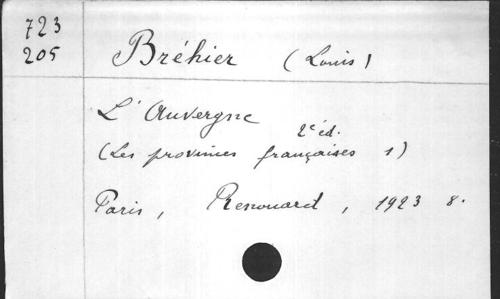 723
205
Bréhier (Louis)
L'Auvergne
2e éd.
(Les provinces françaises 1)
Paris, Renouard, 1923 8.